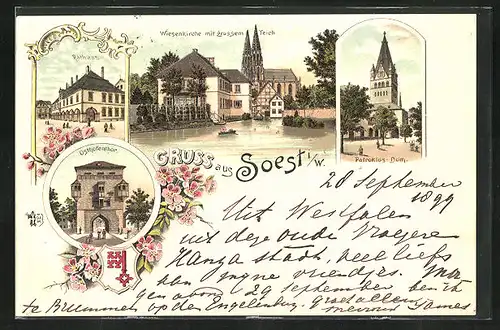 Wiesenkirche mit grossem Teich
Rathhaus
Patroklos-Dom.
Osthofenthor
GRUSS aus Soest i/W.
28 September
1899
Uit Westfalen
uit deze oude vroegere
Hanza stadt, veel liefs
aan
vriendjes.
avond 29 September ben ik
te Brummen op den Engelenburg. Groet allen
James